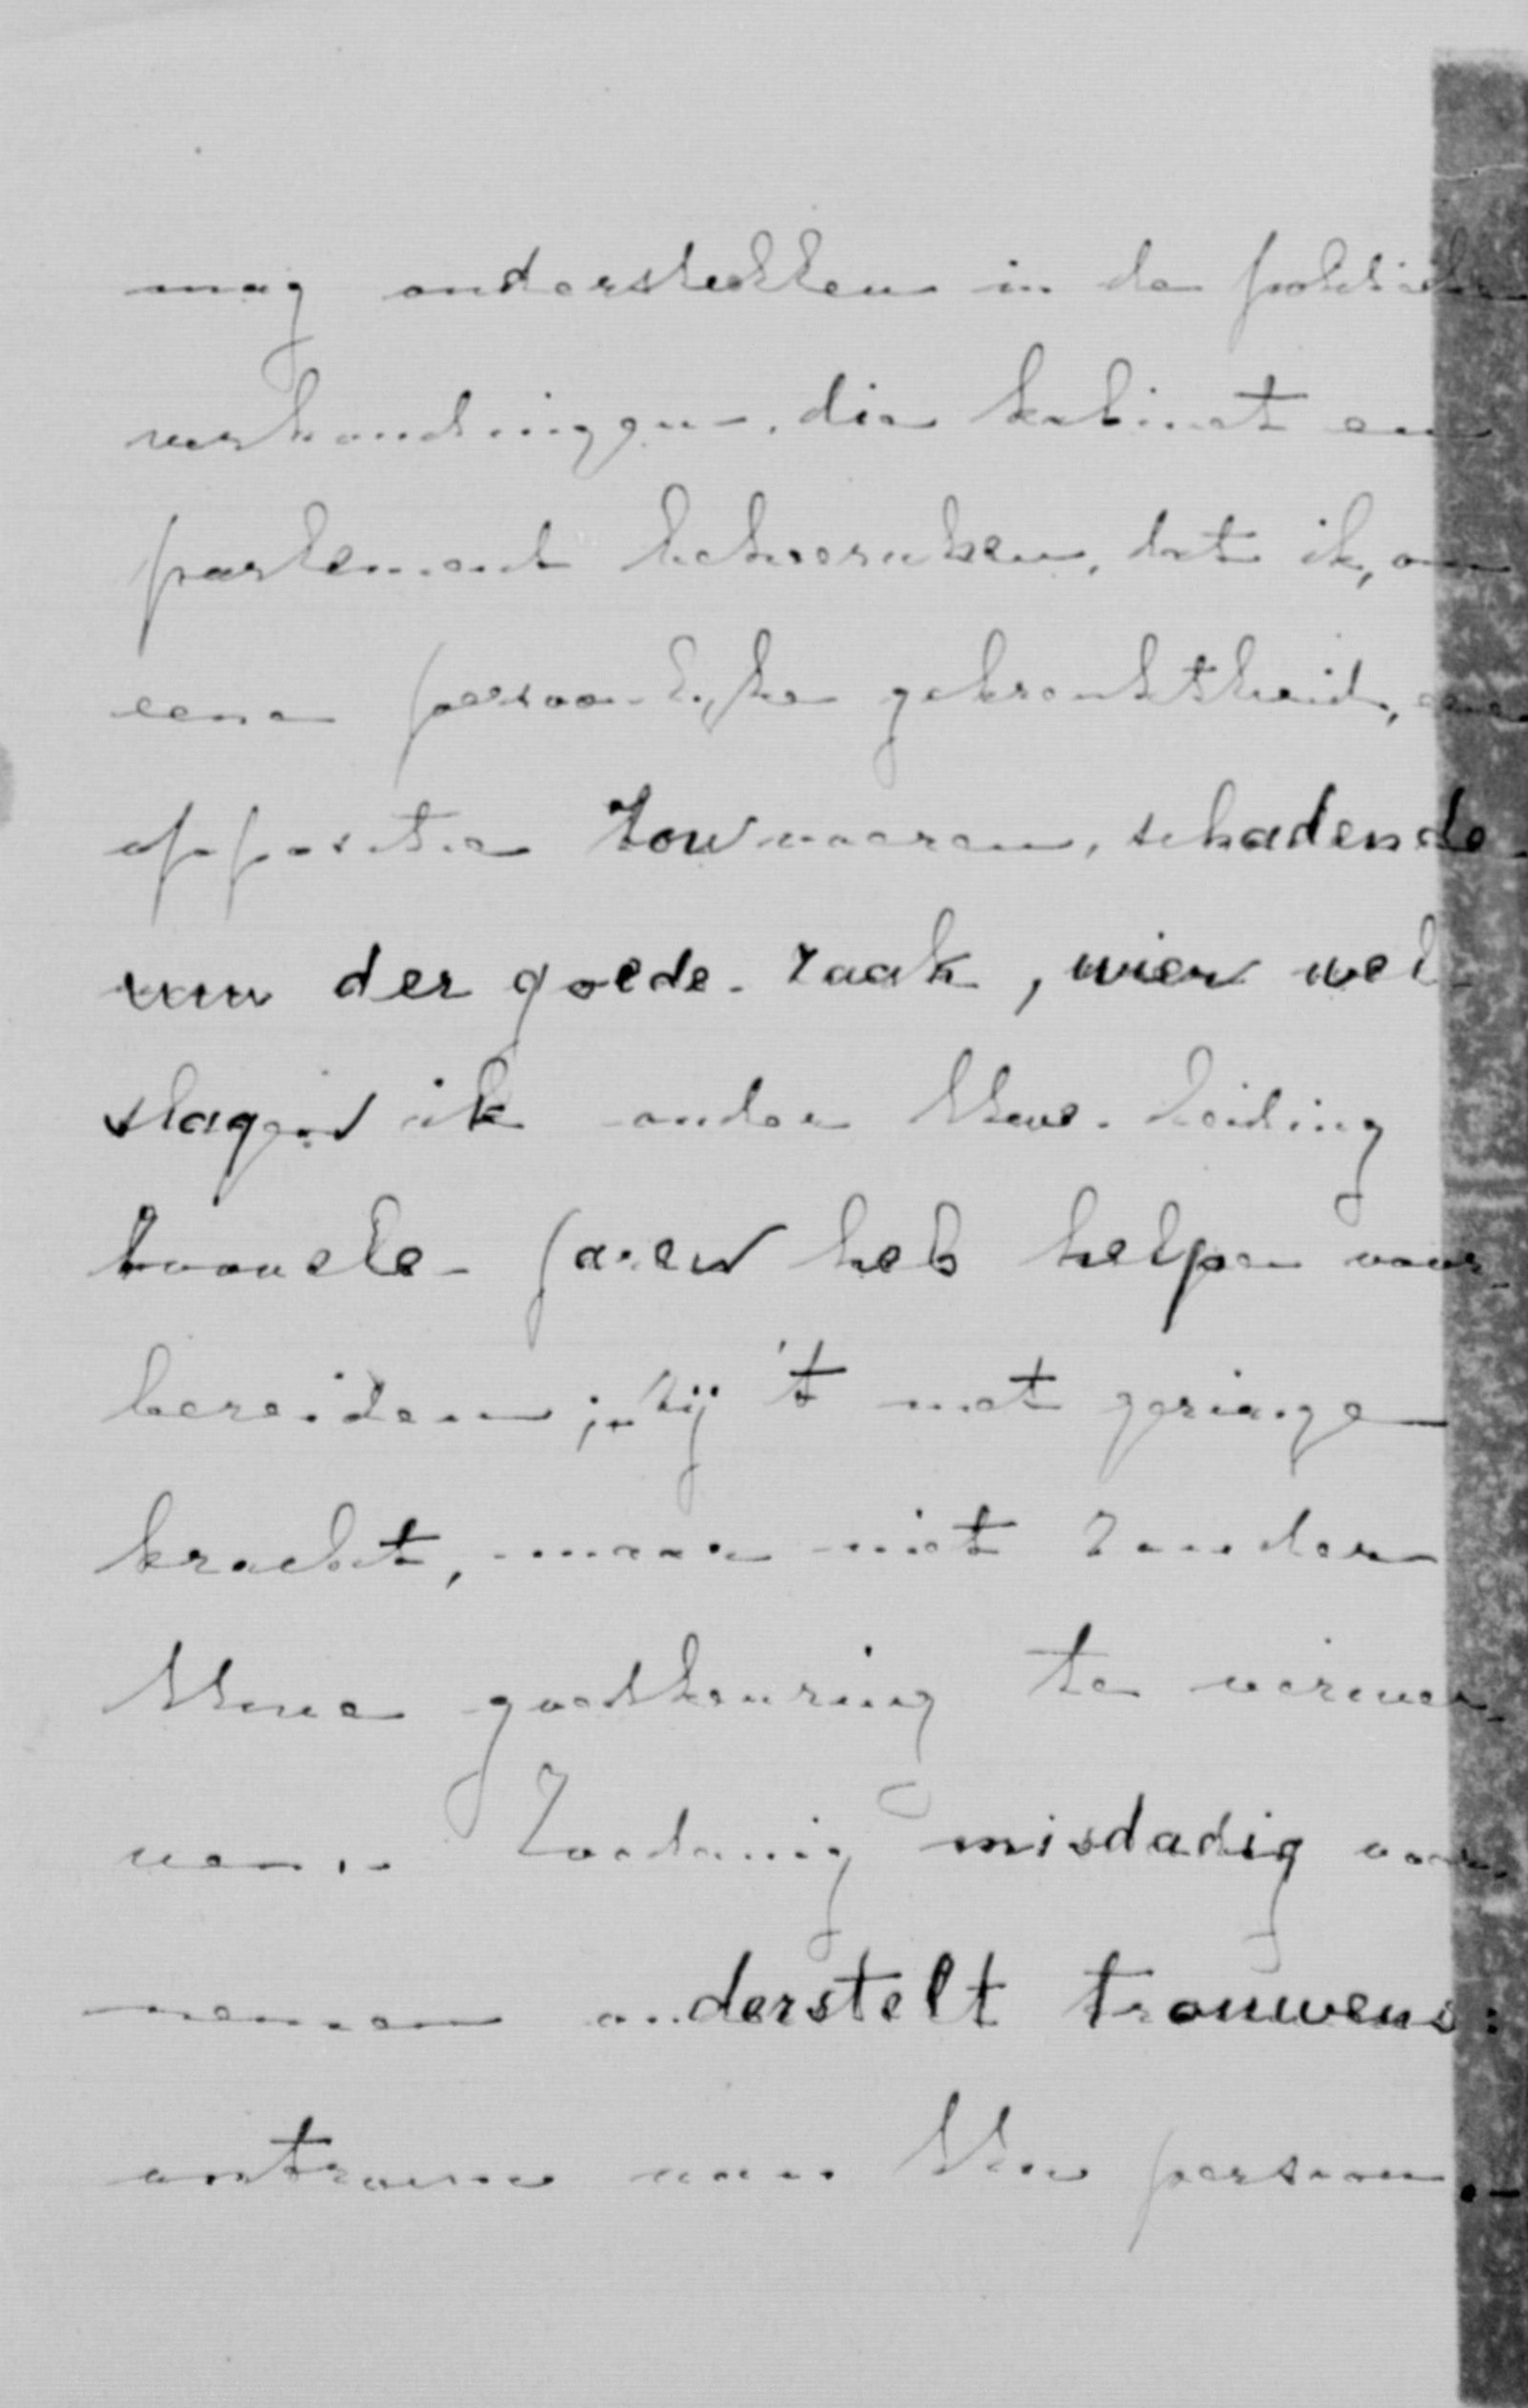 mag onderstellen in de politieke
verhoudingen, die kabinet en
parlement beheerschen, dat ik, om
eene persoonlijke gekrenktheid, eene
oppositie zou voeren, schadende
aan der goede zaak, wier wel-
slagen ik onder Uwe leiding
twaalf jaren heb helpen voor-
bereiden; zij 't met geringe
kracht, maar niet zonder
Uwe goedkeuring te verwer-
ven. Zoodanig misdadig voor-
nemen onderstelt trouwens:
ontrouw aan Uw persoon.–